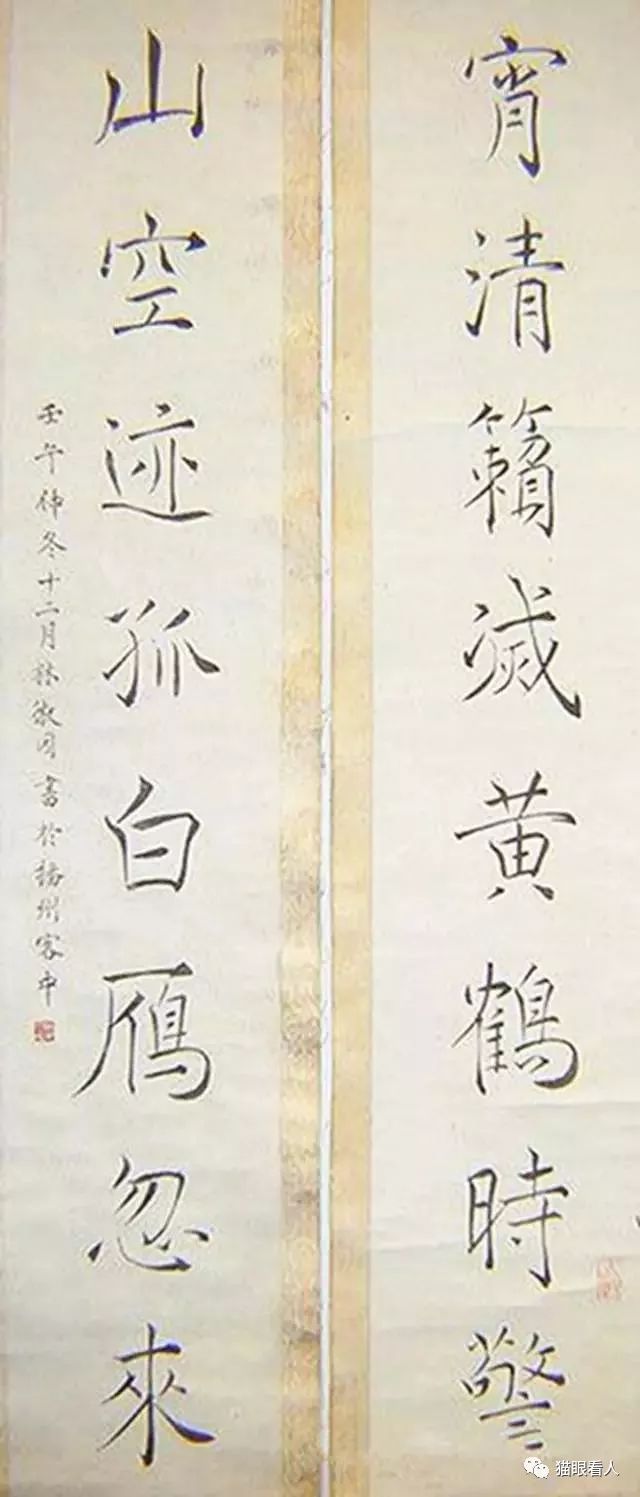 宵清籟滅黄鶴時警
山空迹孤白鴈忽來
壬午仲冬十二月林徽因書於揚州客中
猫眼看人